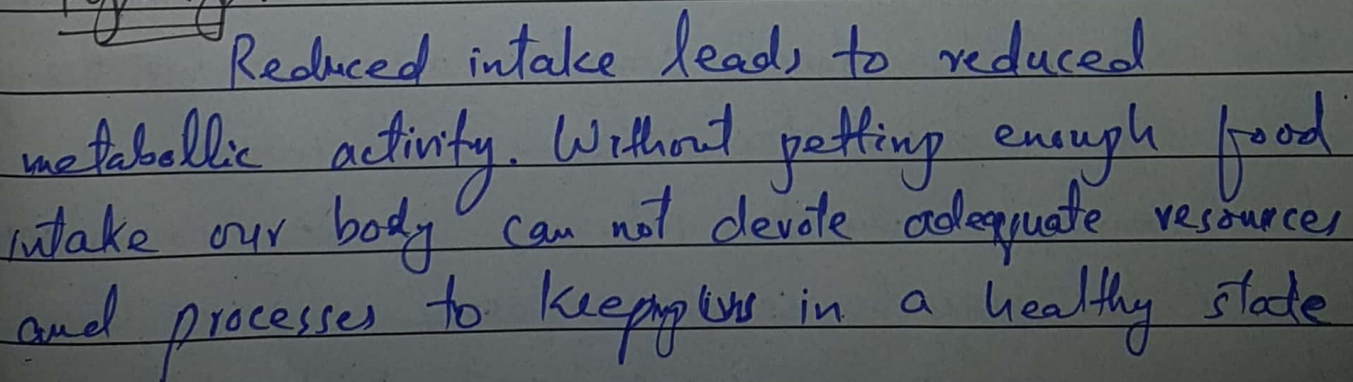 Reduced intake leads to reduced
metabollic activity. Without getting enough food
intake our body can not devote adequate resources
and processes to keeping in a healthy state